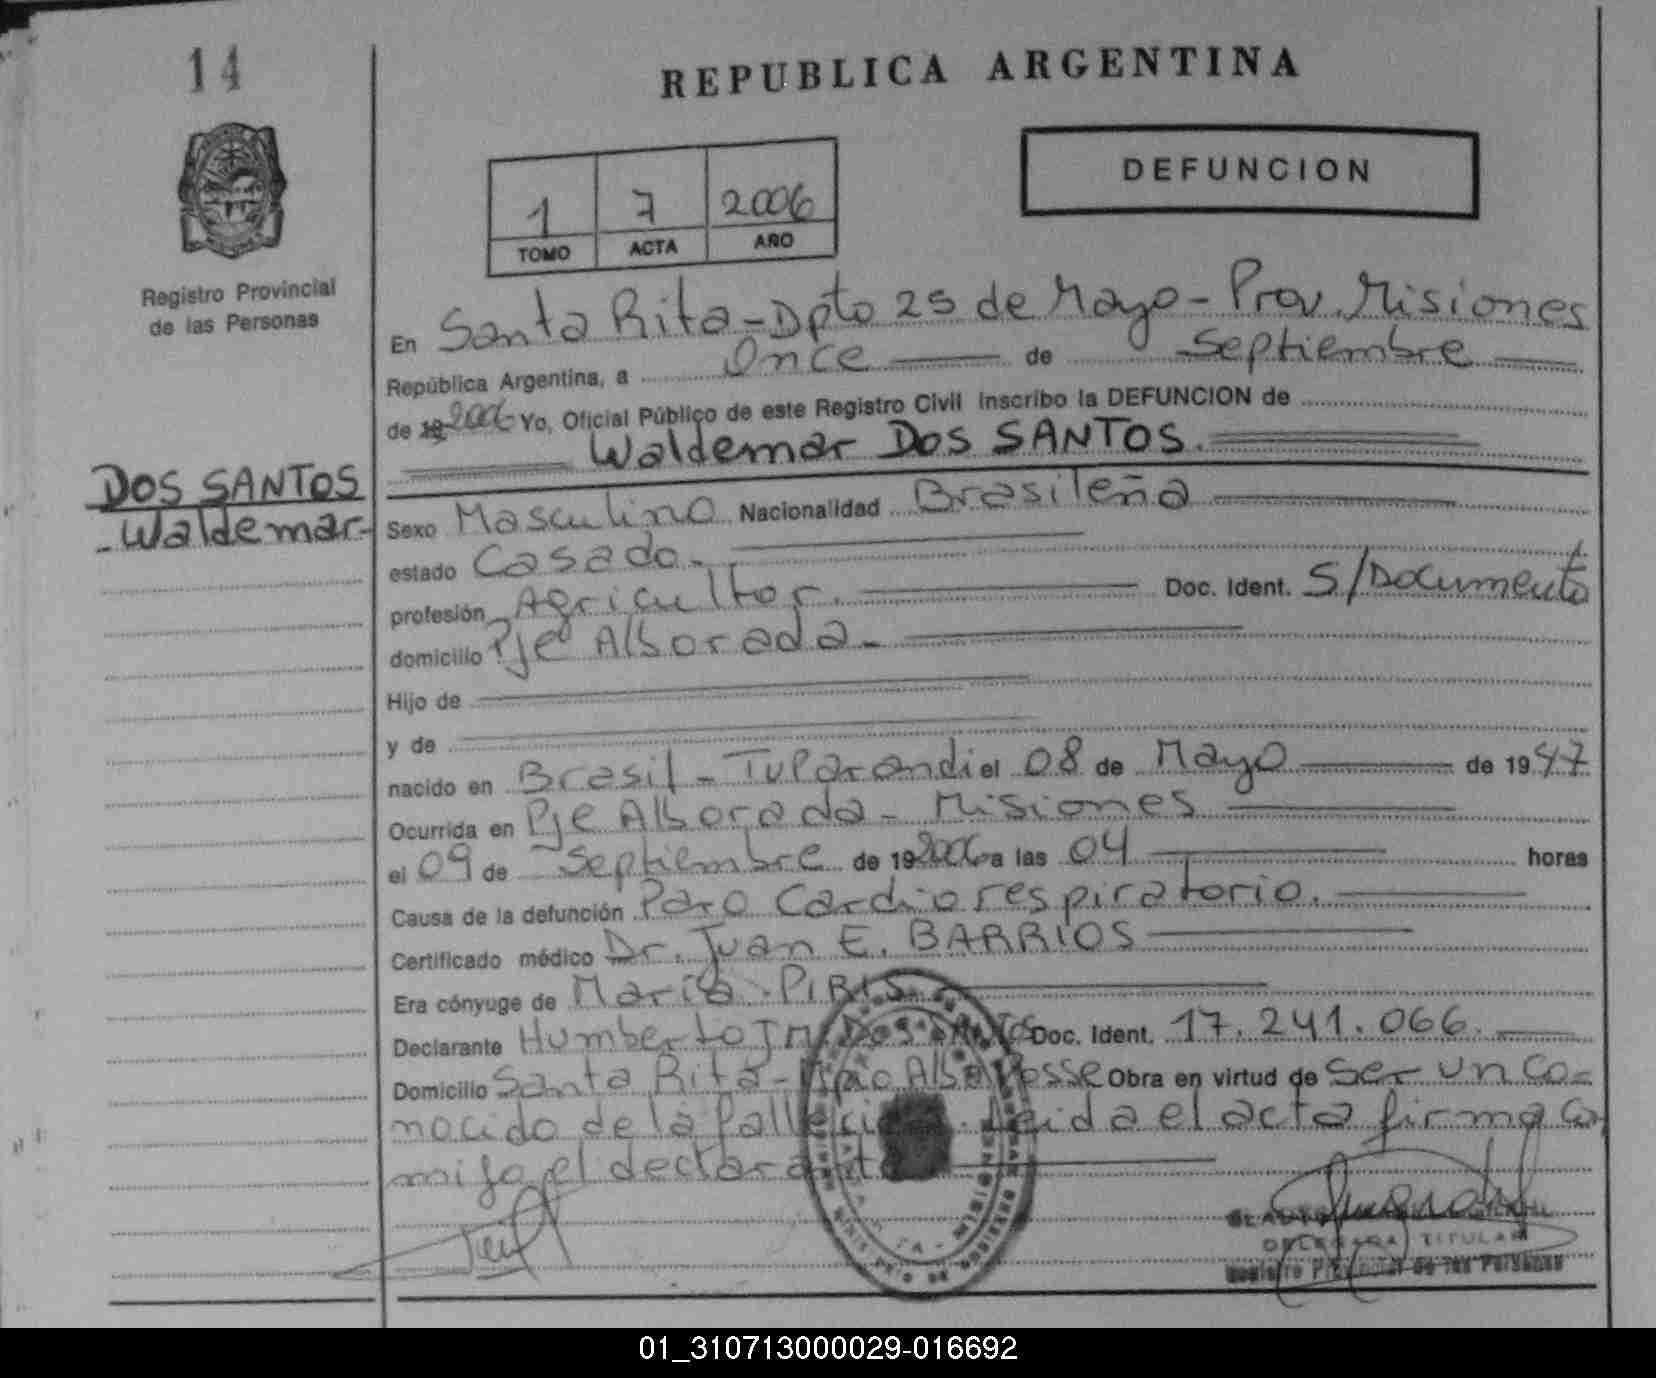 14
REPUBLICA ARGENTINA
DEFUNCION
1 7 2006
TOMO ACTA AÑO
Registro Provincial
de las Personas
En Santa Rita - Dpto 25 de Mayo - Prov. Misiones
República Argentina, a Once de Septiembre
de 19 2006 Yo, Oficial Público de este Registro Civil inscribo la DEFUNCION de
Waldemar DOS SANTOS.
DOS SANTOS
- Waldemar -
Sexo Masculino Nacionalidad Brasileña
estado Casado.
profesión Agricultor. Doc. Ident. S/Documento
domicilio Pje Alborada -
Hijo de
y de
nacido en Brasil - Tuparandi el 08 de Mayo de 1947
Ocurrida en Pje Alborada - Misiones
el 09 de Septiembre de 19 2006 a las 04 horas
Causa de la defunción Paro Cardiorespiratorio.
Certificado médico Dr. Juan E. BARRIOS
Era cónyuge de María PIRIS
Declarante Humberto DOS SANTOS Doc. Ident. 17.241.066.
Domicilio Santa Rita - Mpio Alba Posse Obra en virtud de Ser un Co-
nocido de la Leida el acta firma co
migo el declarante
DELEGADA TITULAR
Registro Provincial de las Personas
01_310713000029-016692